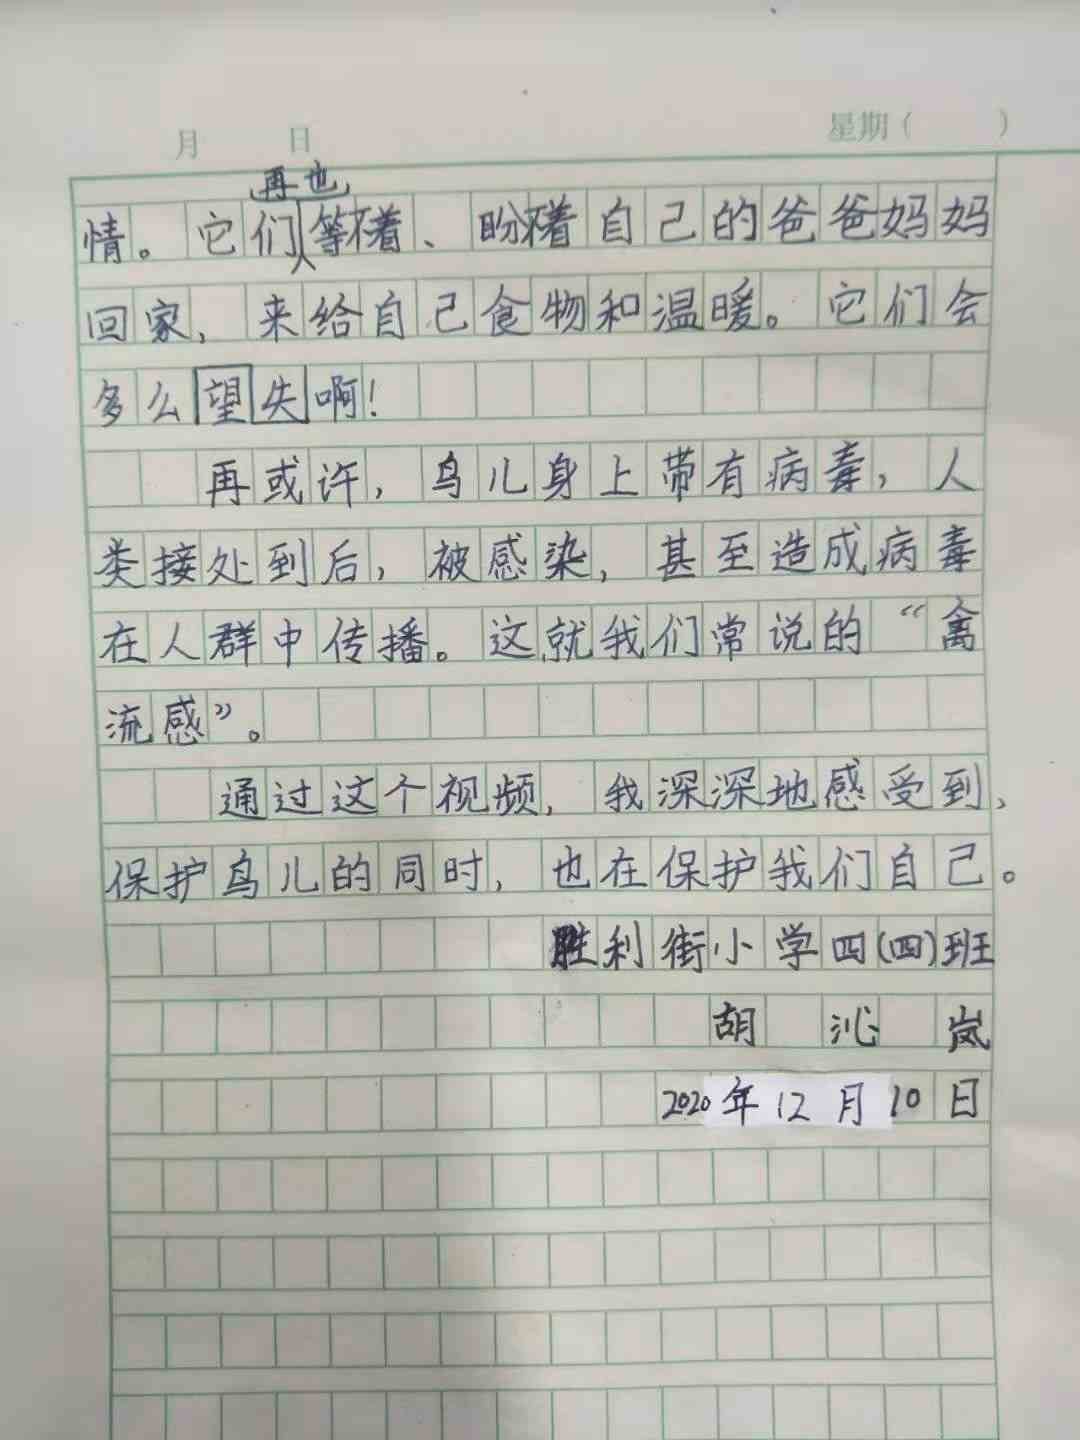 月 日 星期（ ）
再也
情。它们等不着、盼不着自己的爸爸妈妈
回家，来给自己食物和温暖。它们会
多么望失啊！
再或许，鸟儿身上带有病毒，人
类接处到后，被感染，甚至造成病毒
在人群中传播。这就我们常说的“禽
流感”。
通过这个视频，我深深地感受到，
保护鸟儿的同时，也在保护我们自己。
胜利街小学四(四)班
胡沁岚
2020年12月10日